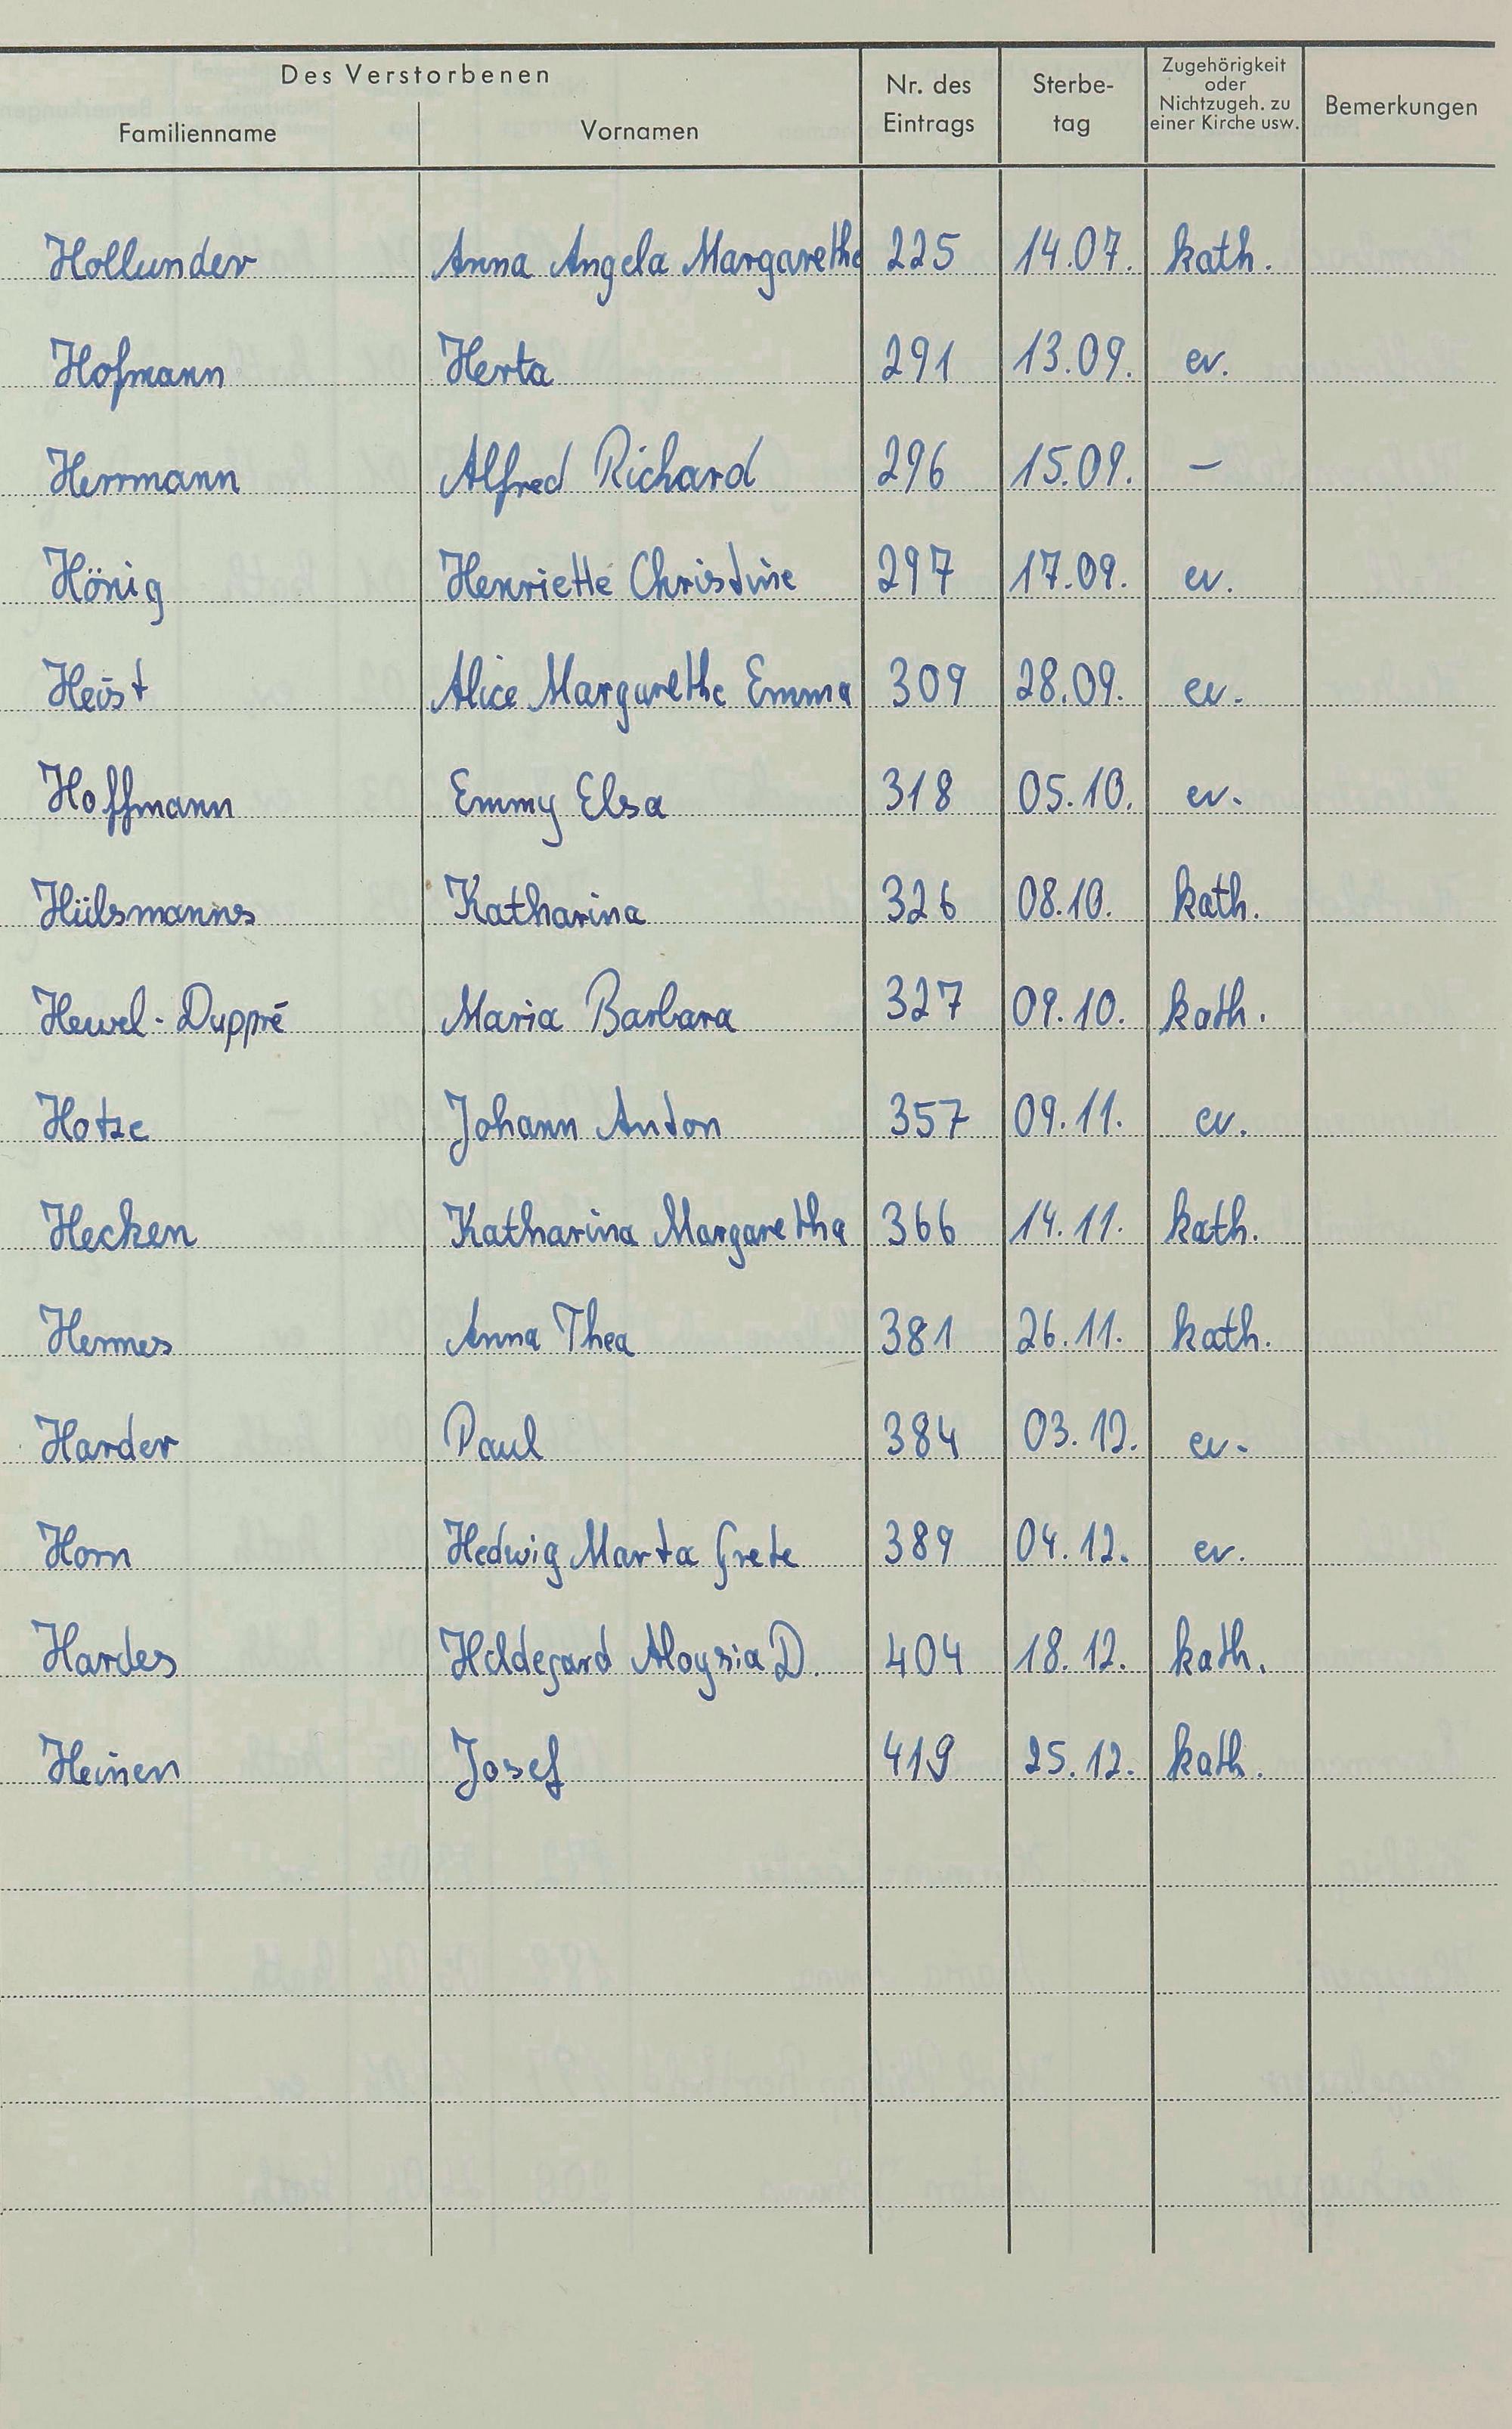 Des Verstorbenen
Familienname Vornamen Nr. des Eintrags Sterbe-tag Zugehörigkeit oder Nichtzugeh. zu einer Kirche usw. Bemerkungen
Hollunder Anna Angela Margaretha 225 14.07. kath.
Hofmann Herta 291 13.09. ev.
Herrmann Alfred Richard 296 15.09. –
Hönig Henriette Christine 297 17.09. ev.
Heist Alice Margarethe Emma 309 28.09. ev.
Hoffmann Emmy Elsa 318 05.10. ev.
Hülsmanns Katharina 326 08.10. kath.
Hewel-Duppré Maria Barbara 327 09.10. kath.
Hotze Johann Anton 357 09.11. ev.
Hecken Katharina Margaretha 366 14.11. kath.
Hermes Anna Thea 381 26.11. kath.
Harder Paul 384 03.12. ev.
Horn Hedwig Marta Grete 389 04.12. ev.
Hardes Hildegard Aloysia D. 404 18.12. kath.
Heinen Josef 419 25.12. kath.